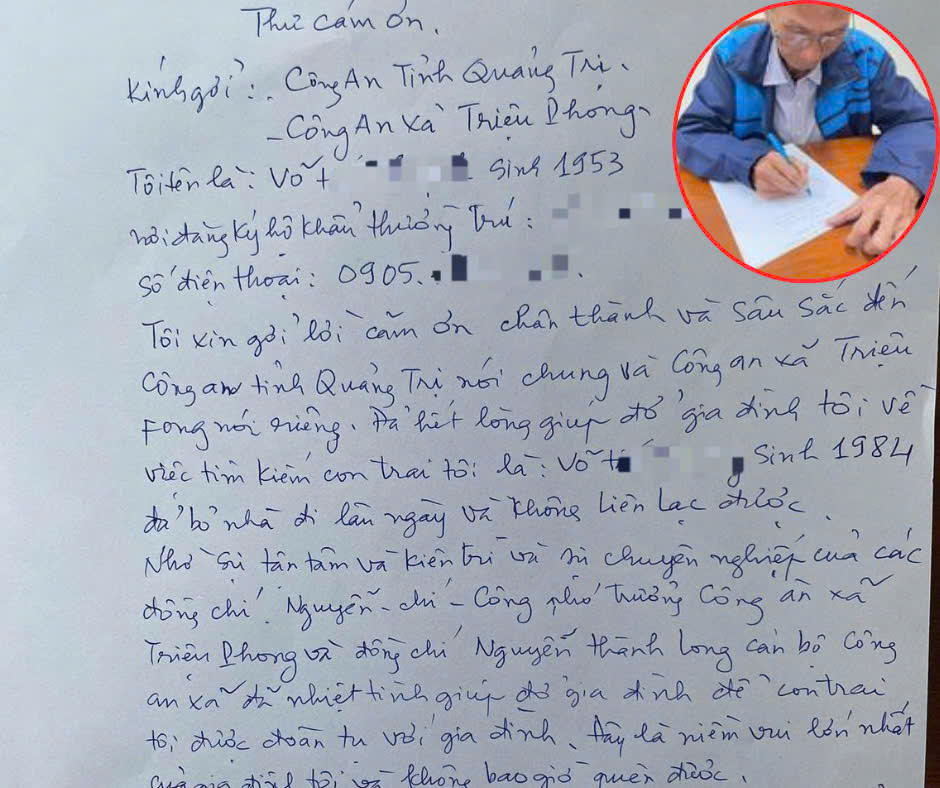 Thư cám ơn.
Kính gởi: - Công An Tỉnh Quảng Trị.
- Công An xã Triệu Phong
Tôi tên là: Võ t Sinh 1953
nơi đăng ký hộ khẩu thường trú:
Số điện thoại: 0905.
Tôi xin gởi lời cảm ơn chân thành và sâu sắc đến
Công an tỉnh Quảng Trị nói chung và Công an xã Triệu
Fong nói riêng. Đã hết lòng giúp đở gia đình tôi về
việc tìm kiếm con trai tôi là: Võ t Sinh 1984
đã bỏ nhà đi lâu ngày và không liên lạc được.
Nhờ sự tận tâm và kiên trì và sự chuyên nghiệp của các
đồng chí. Nguyễn - chí - Công phó trưởng Công an xã
Triệu Phong và đồng chí Nguyễn thành Long cán bộ Công
an xã đã nhiệt tình giúp đở gia đình để con trai
tôi được đoàn tụ với gia đình. Đây là niềm vui lớn nhất
của gia đình tôi và không bao giờ quên được.